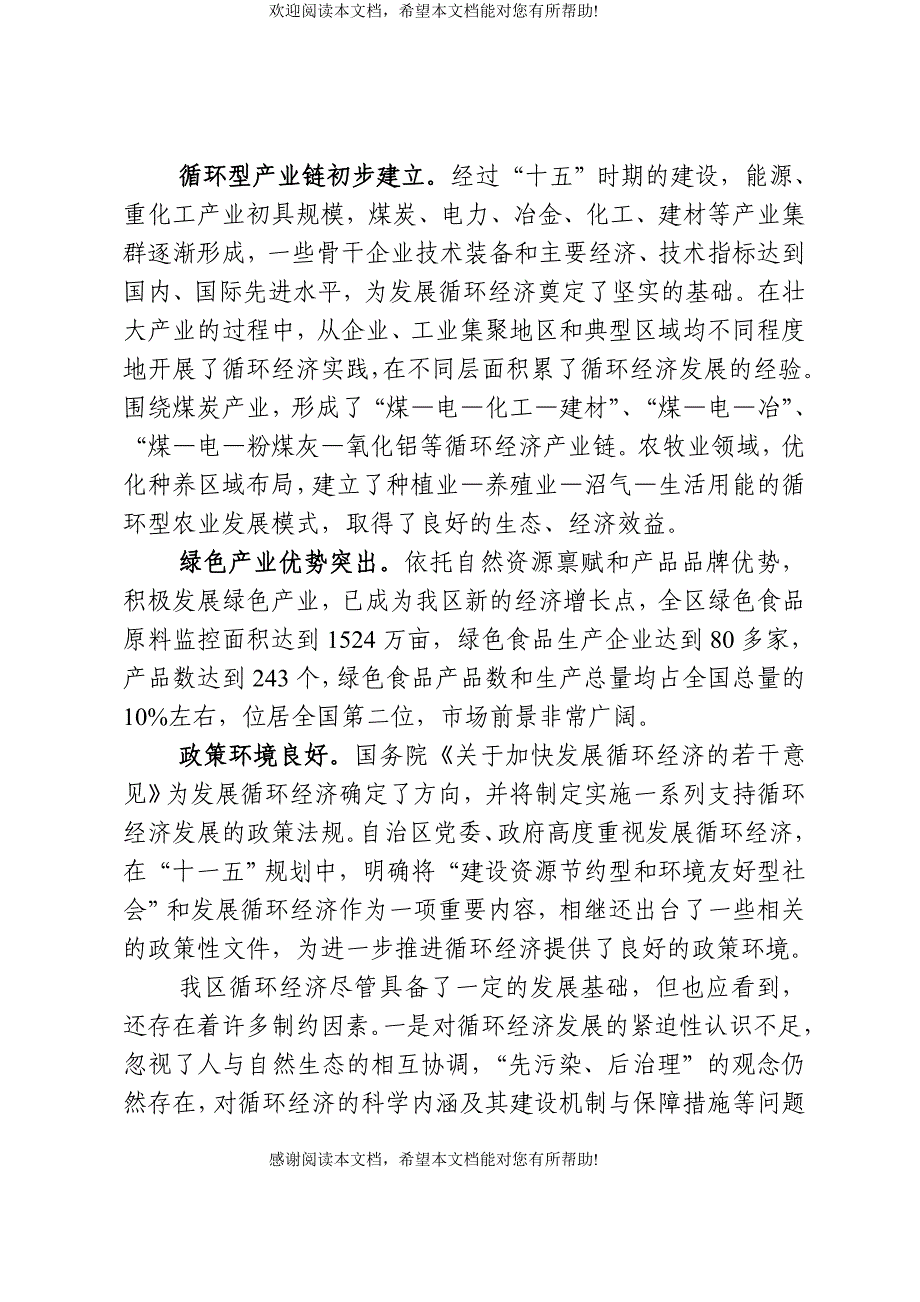 欢迎阅读本文档，希望本文档能对您有所帮助!
循环型产业链初步建立。经过“十五”时期的建设，能源、
重化工产业初具规模，煤炭、电力、冶金、化工、建材等产业集
群逐渐形成，一些骨干企业技术装备和主要经济、技术指标达到
国内、国际先进水平，为发展循环经济奠定了坚实的基础。在壮
大产业的过程中，从企业、工业集聚地区和典型区域均不同程度
地开展了循环经济实践，在不同层面积累了循环经济发展的经验。
围绕煤炭产业，形成了“煤—电—化工—建材”、“煤—电—冶”、
“煤—电—粉煤灰—氧化铝等循环经济产业链。农牧业领域，优
化种养区域布局，建立了种植业—养殖业—沼气—生活用能的循
环型农业发展模式，取得了良好的生态、经济效益。
绿色产业优势突出。依托自然资源禀赋和产品品牌优势，
积极发展绿色产业，已成为我区新的经济增长点，全区绿色食品
原料监控面积达到 1524 万亩，绿色食品生产企业达到 80 多家，
产品数达到 243 个，绿色食品产品数和生产总量均占全国总量的
10%左右，位居全国第二位，市场前景非常广阔。
政策环境良好。国务院《关于加快发展循环经济的若干意
见》为发展循环经济确定了方向，并将制定实施一系列支持循环
经济发展的政策法规。自治区党委、政府高度重视发展循环经济，
在“十一五”规划中，明确将“建设资源节约型和环境友好型社
会”和发展循环经济作为一项重要内容，相继还出台了一些相关
的政策性文件，为进一步推进循环经济提供了良好的政策环境。
我区循环经济尽管具备了一定的发展基础，但也应看到，
还存在着许多制约因素。一是对循环经济发展的紧迫性认识不足，
忽视了人与自然生态的相互协调，“先污染、后治理”的观念仍
然存在，对循环经济的科学内涵及其建设机制与保障措施等问题
感谢阅读本文档，希望本文档能对您有所帮助!